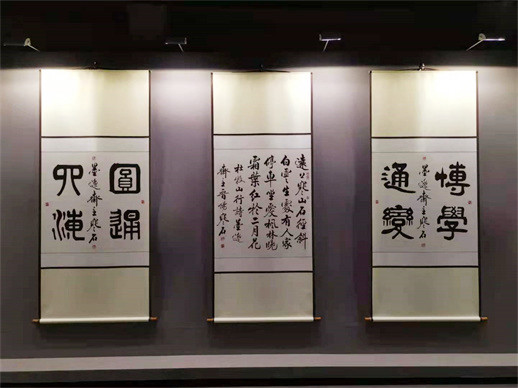 博學
通變
墨逸齋主寒石
遠上寒山石徑斜
白雲生處有人家
停車坐愛楓林晚
霜葉紅於二月花
杜牧山行詩墨逸
齋主寒石
圓通
六
墨逸齋主寒石